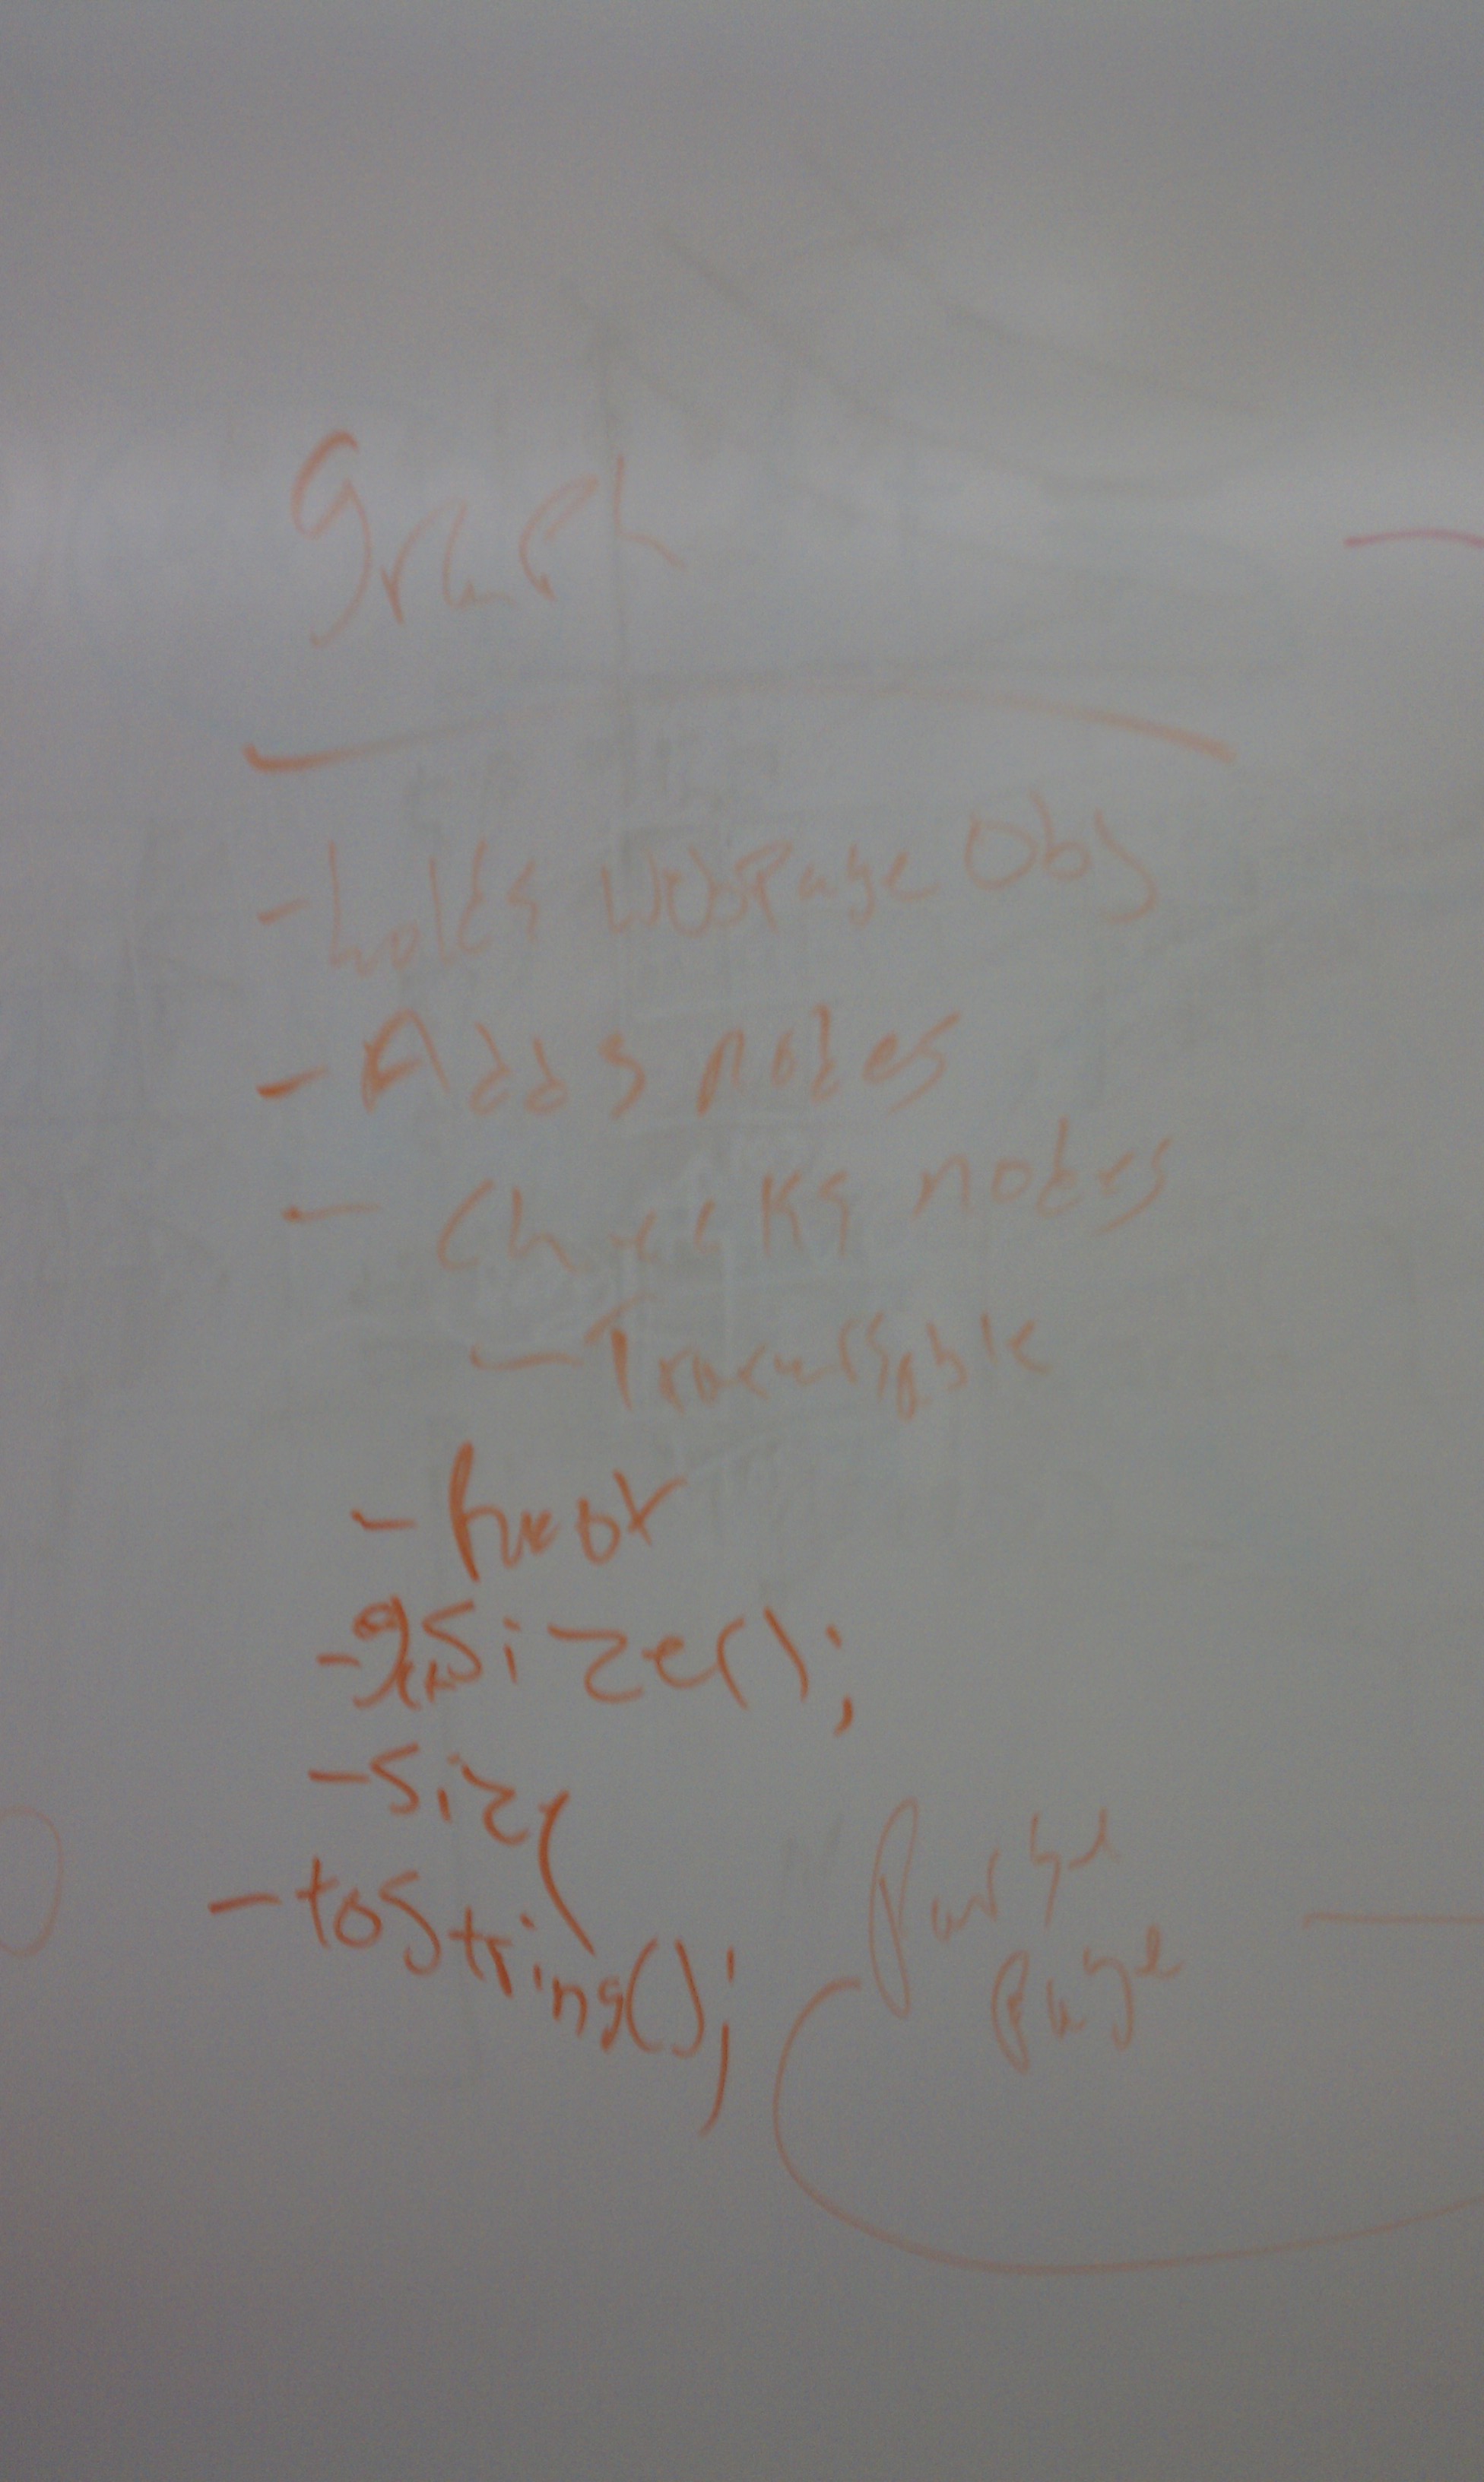 graph
- holds WebPage Obj
- Adds nodes
- Checks nodes
- Traversable
- root
- size();
- size
- toString();
Parse
Page